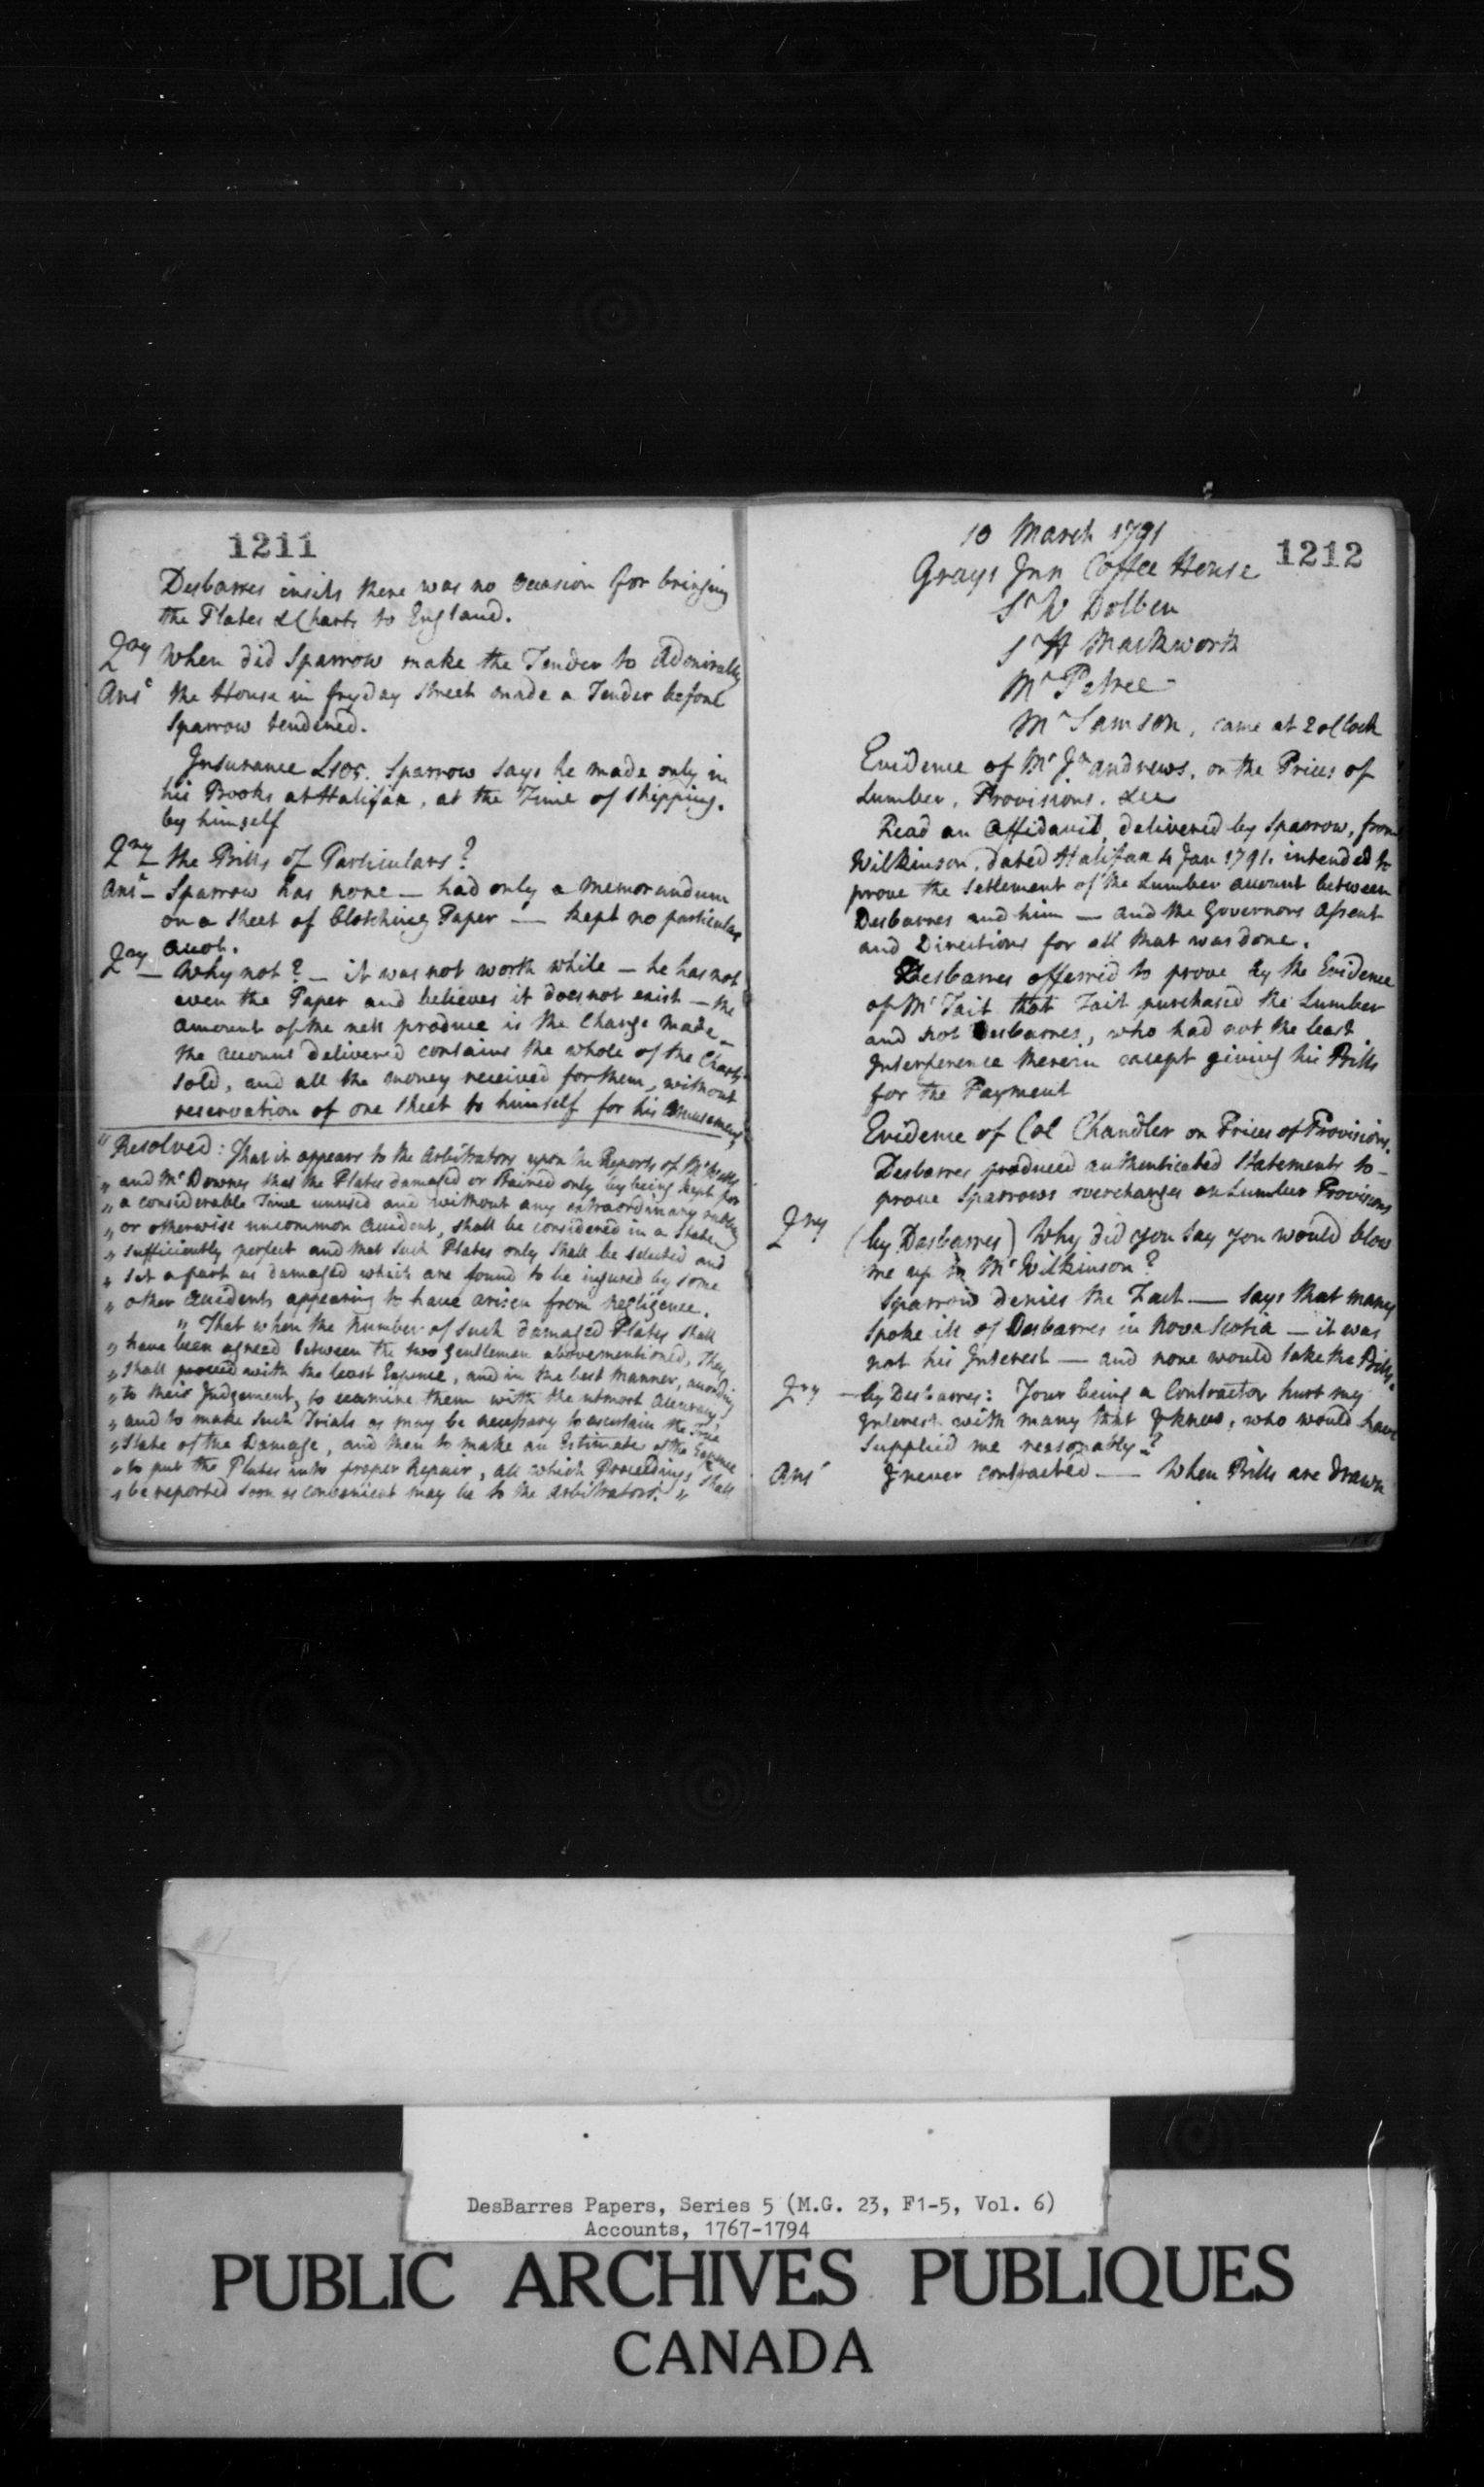 1211
Desbarres insists there was no Occasion for bringing
the Plates & Charts to England.
Qry When did Sparrow make the Tender to Admiralty
Ansr the House in fryday Street made a Tender before
Sparrow tendered.
Insurance £105. Sparrow says he made only in
his Books at Halifax, at the Time of Shipping.
by himself
Qry the Bills of Particulars?
Ansr – Sparrow has none — had only a Memorandum
on a Sheet of Blotching Paper — kept no particular
Accot.
Qry – Why not? – it was not worth while – he has not
even the Paper and believes it does not exist – the
amount of the nett produce is the Charge made –
the account delivered contains the whole of the Charts
sold, and all the money received for them, without
reservation of one Sheet to himself for his Amusement
"Resolved: That it appears to the Arbitrators upon the Reports of Mr
" and Mr Downes that the Plates damaged or Stained only by being kept for
" a considerable Time unused and without any extraordinary rubbing
" or otherwise uncommon Accident, shall be considered in a State
" sufficiently perfect and that such Plates only shall be selected and
" set apart as damaged which are found to be injured by some
" other Accidents appearing to have arisen from Negligence.
" That when the Number of such damaged Plates shall
" have been agreed between the two Gentlemen abovementioned, They
" shall proceed with the least Expence, and in the best Manner, according
" to their Judgement, to examine them with the utmost Accuracy,
" and to make such Trials as may be necessary to ascertain the True
" State of the Damage, and then to make an Estimate of the Expence
" to put the Plates into proper Repair, all which Proceedings shall
" be reported soon as convenient may be to the Arbitrators. "
10 March 1791
1212
Grays Inn Coffee House
Sr W Dolben
Sr H Mackworth
Mr Petree
Mr Samson, came at 2 oClock
Evidence of Mr Jn Andrews, on the Prices of
Lumber, Provisions. &ca
Read an Affidavit, delivered by Sparrow, from
Wilkinson, dated Halifax 4 Jan 1791. intended to
prove the Settlement of the Lumber account between
Desbarres and him — and the Governors Assent
and Directions for all that was done.
Desbarres offerred to prove by the Evidence
of Mr Tait that Tait purchased the Lumber
and not Desbarres, who had not the least
Interference therein except giving his Bills
for the Payment
Evidence of Col Chandler on Prices of Provisions.
Desbarres produced authenticated Statements to
prove Sparrows overcharges on Lumber Provisions
Qry (by Desbarres) Why did you say you would blow
me up to Mr Wilkinson?
Sparrow denies the Fact — says that many
spoke ill of Desbarres in Nova Scotia — it was
not his Interest — and none would take the Bills.
Qry — by Desbarres: Your being a Contractor hurt my
Interest with many that I knew, who would have
supplied me reasonably?
Ansr I never contracted — When Bills are drawn
DesBarres Papers, Series 5 (M.G. 23, F1-5, Vol. 6)
Accounts, 1767-1794
PUBLIC ARCHIVES PUBLIQUES
CANADA